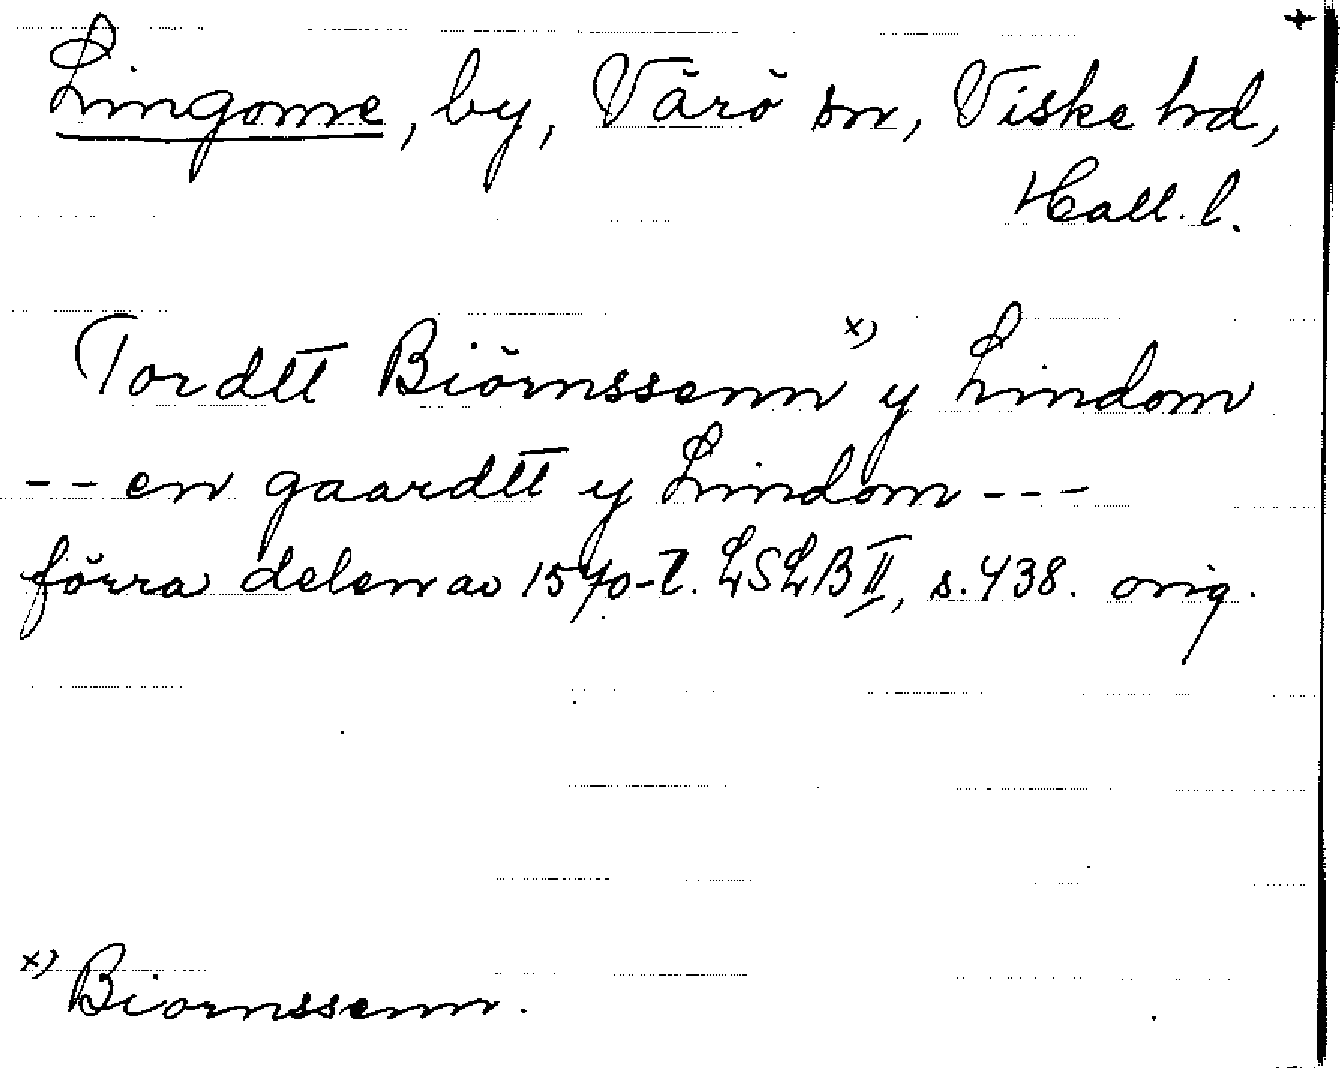 +
Lingome, by, Värö sn, Viske hd,
Hall. l.
Tordtt Biörnssenn x) y Lindom
-- en gaardtt y Lindom ---
förra delen av 1570-t. LSLB II, s. 438. orig.
x) Biornssenn.